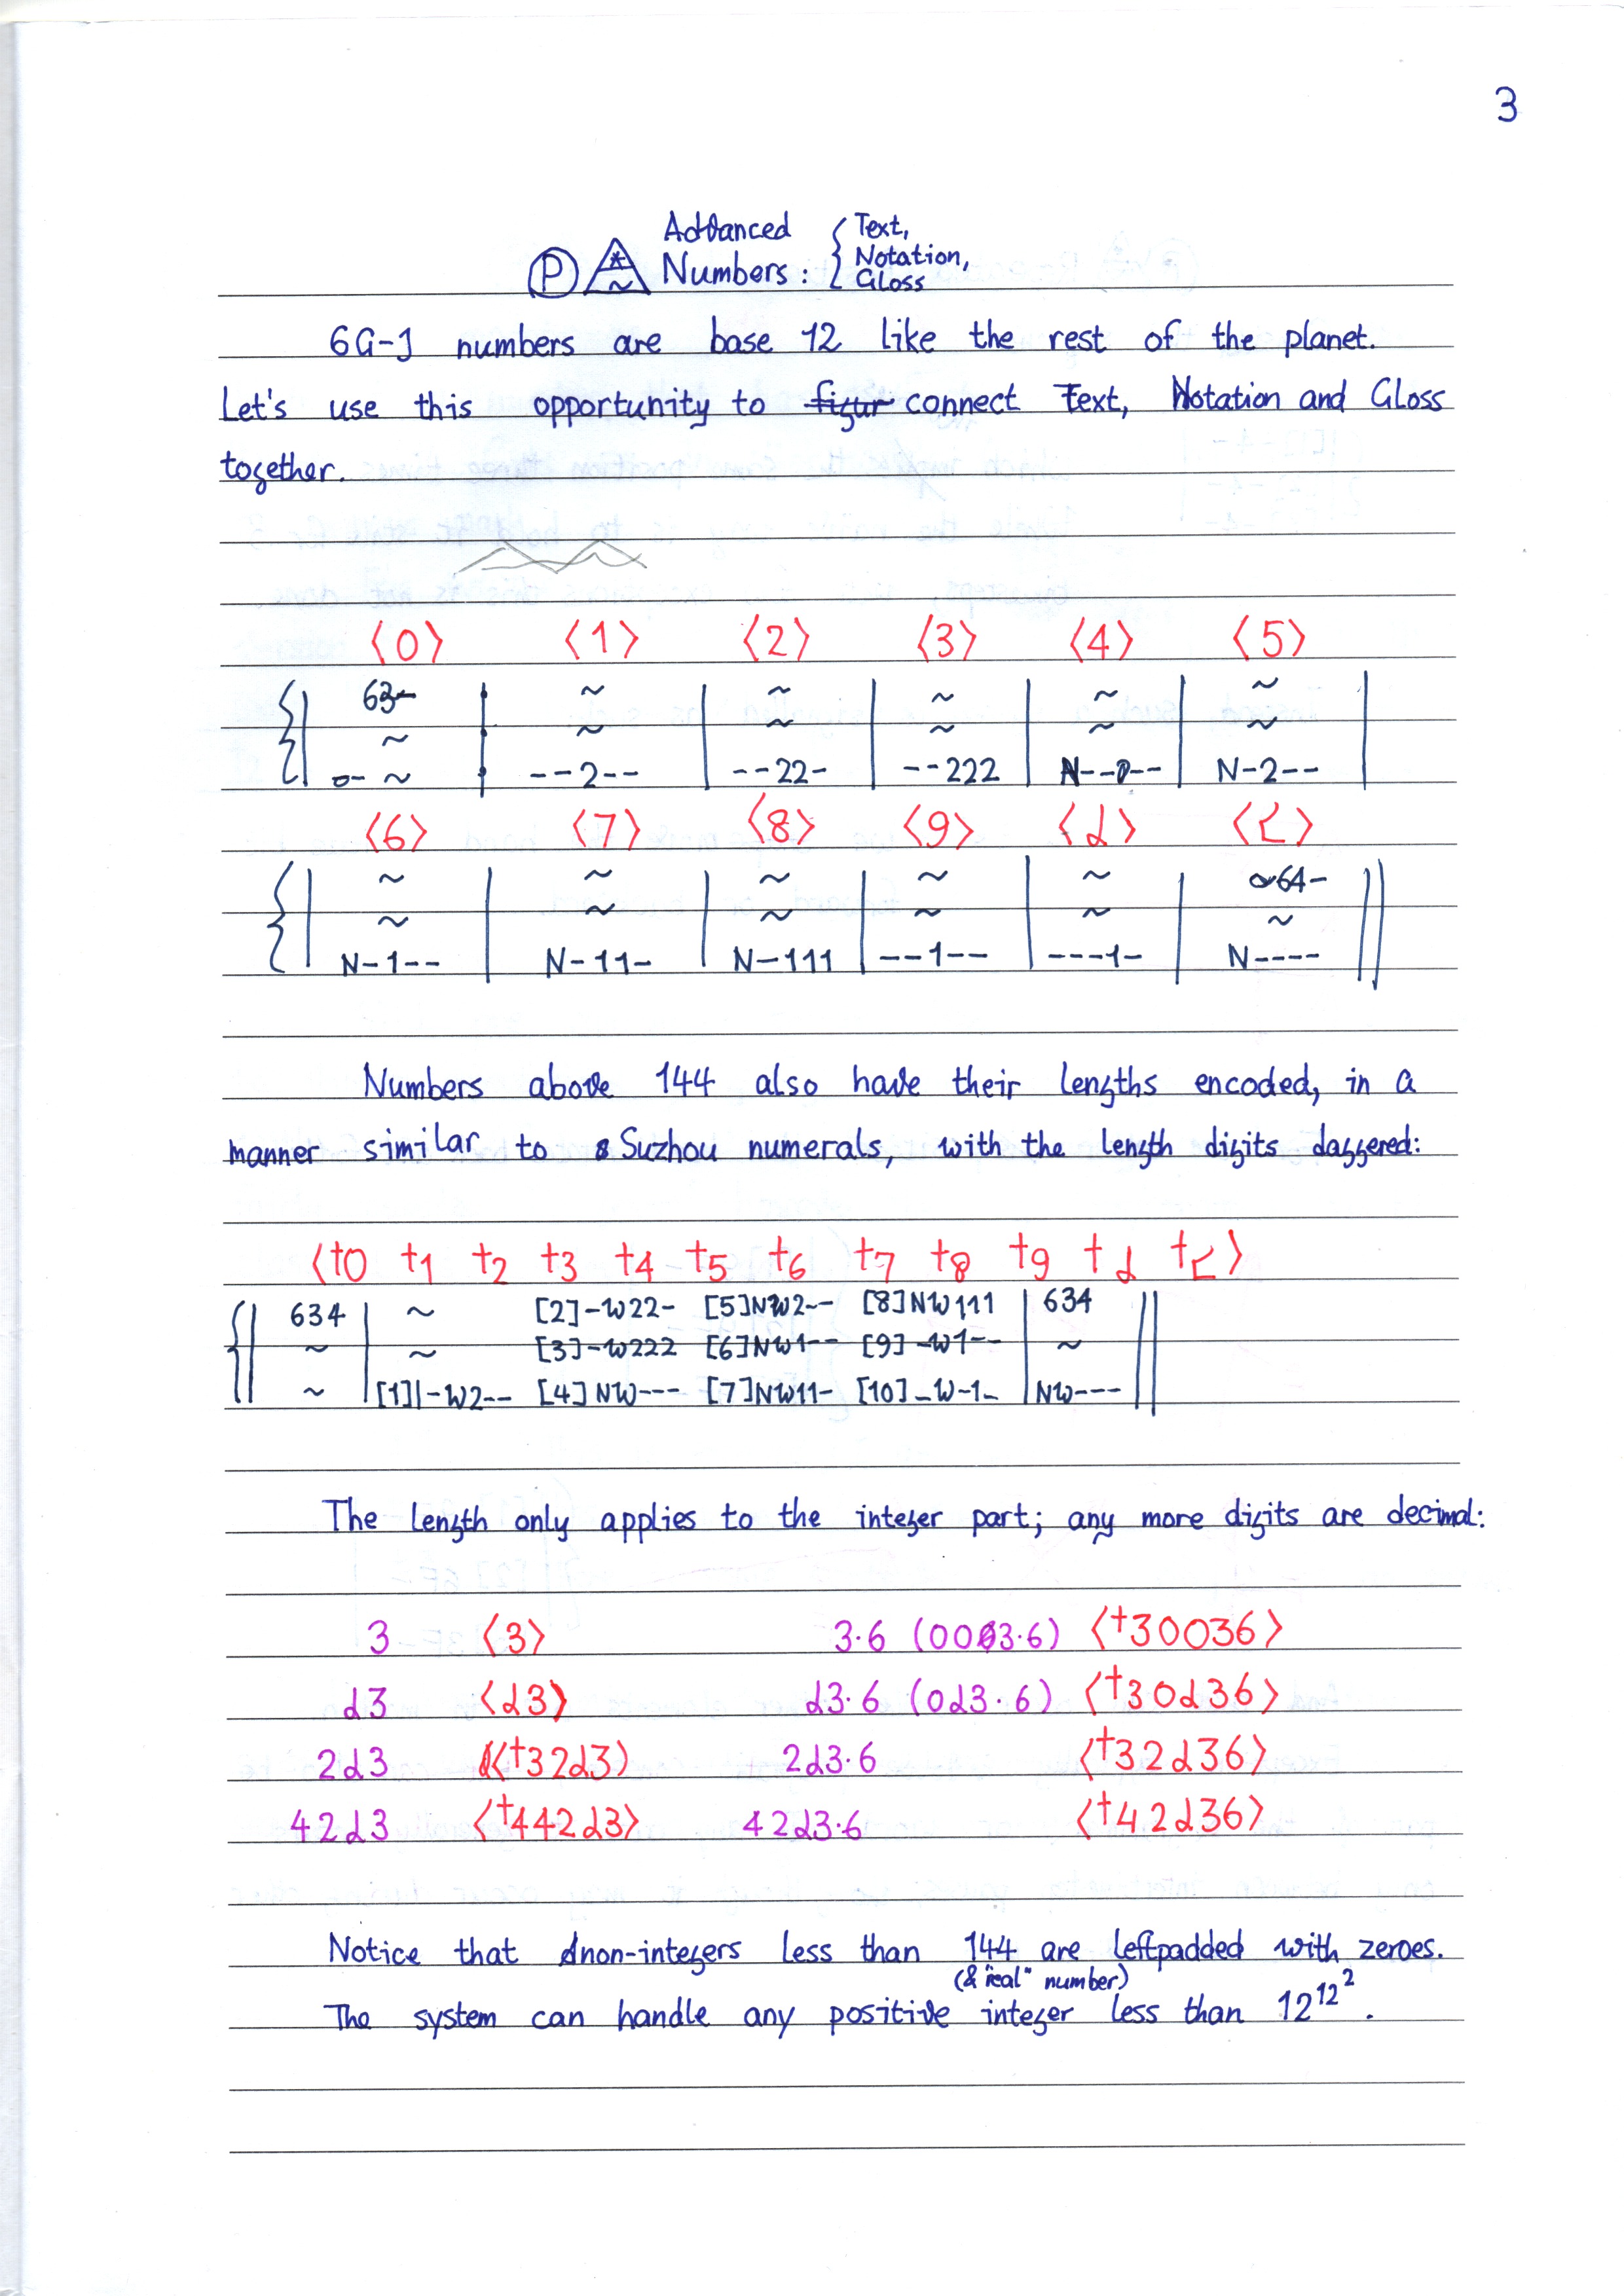 3
Advanced Numbers: { Text, Notation, Gloss
P * ~
6G-J numbers are base 12 like the rest of the planet.
Let's use this opportunity to figur connect Text, Notation and Gloss
together.
⟨0⟩ ⟨1⟩ ⟨2⟩ ⟨3⟩ ⟨4⟩ ⟨5⟩
63- | ~ | ~ | ~ | ~ | ~
~ | ~ | ~ | ~ | ~ | ~
~ | --2-- | --22- | --222 | N---- | N-2--
⟨6⟩ ⟨7⟩ ⟨8⟩ ⟨9⟩ ⟨↊⟩ ⟨↋⟩
~ | ~ | ~ | ~ | ~ | 64-
~ | ~ | ~ | ~ | ~ | ~
N-1-- | N-11- | N-111 | --1-- | ---1- | N----
Numbers above 144 also have their lengths encoded, in a
manner similar to Suzhou numerals, with the length digits daggered:
⟨†0 †1 †2 †3 †4 †5 †6 †7 †8 †9 †↊ †↋⟩
634 | ~ [2]-W22- [5]NW2-- [8]NW111 | 634
~ | ~ [3]-W222 [6]NW1-- [9]-W1-- | ~
~ | [1]|-W2-- [4]NW--- [7]NW11- [10]-W-1- | NW---
The length only applies to the integer part; any more digits are decimal:
3 ⟨3⟩ 3.6 (003.6) ⟨†30036⟩
↊3 ⟨↊3⟩ ↊3.6 (0↊3.6) ⟨†30↊36⟩
2↊3 ⟨†32↊3⟩ 2↊3.6 ⟨†32↊36⟩
42↊3 ⟨†442↊3⟩ 42↊3.6 ⟨†42↊36⟩
Notice that non-integers less than 144 are leftpadded with zeroes.
(& "real" number)
The system can handle any positive integer less than 12^12^2.